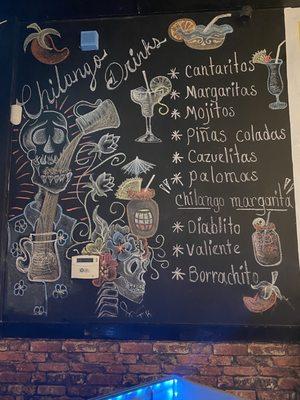 Chilango Drinks
* Cantaritos
* Margaritas
* Mojitos
* Piñas coladas
* Cazuelitas
* palomas
chilango margarita
* Diablito
* valiente
* Borrachito